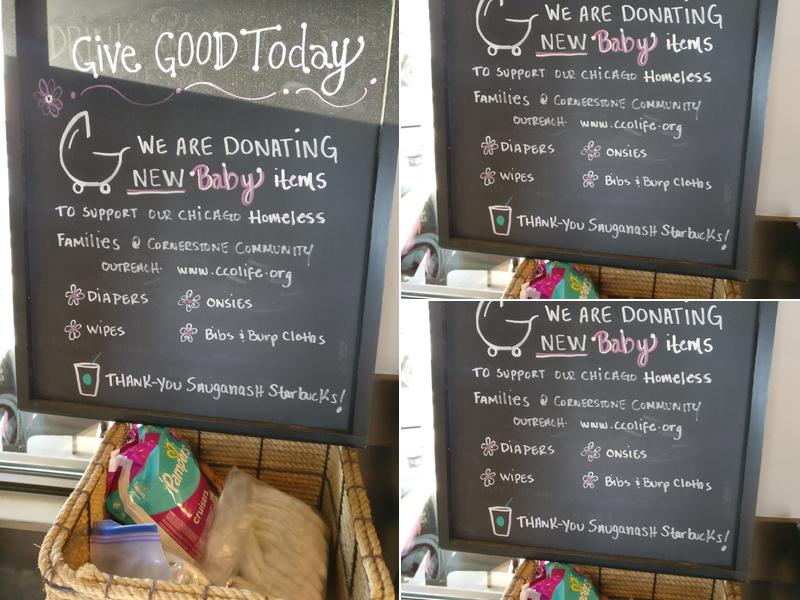 Give GOOD Today
WE ARE DONATING
NEW Baby items
TO SUPPORT OUR CHICAGO Homeless
Families @ CORNERSTONE COMMUNITY
OUTREACH- www.ccolife.org
DIAPERS ONSIES
WIPES Bibs & Burp Cloths
THANK-YOU SAUGANASH Starbucks!
Pampers
cruisers
WE ARE DONATING
NEW Baby items
TO SUPPORT OUR CHICAGO Homeless
Families @ CORNERSTONE COMMUNITY
OUTREACH- www.ccolife.org
DIAPERS ONSIES
WIPES Bibs & Burp Cloths
THANK-YOU SAUGANASH Starbucks!
WE ARE DONATING
NEW Baby items
TO SUPPORT OUR CHICAGO Homeless
Families @ CORNERSTONE COMMUNITY
OUTREACH- www.ccolife.org
DIAPERS ONSIES
WIPES Bibs & Burp Cloths
THANK-YOU SAUGANASH Starbucks!